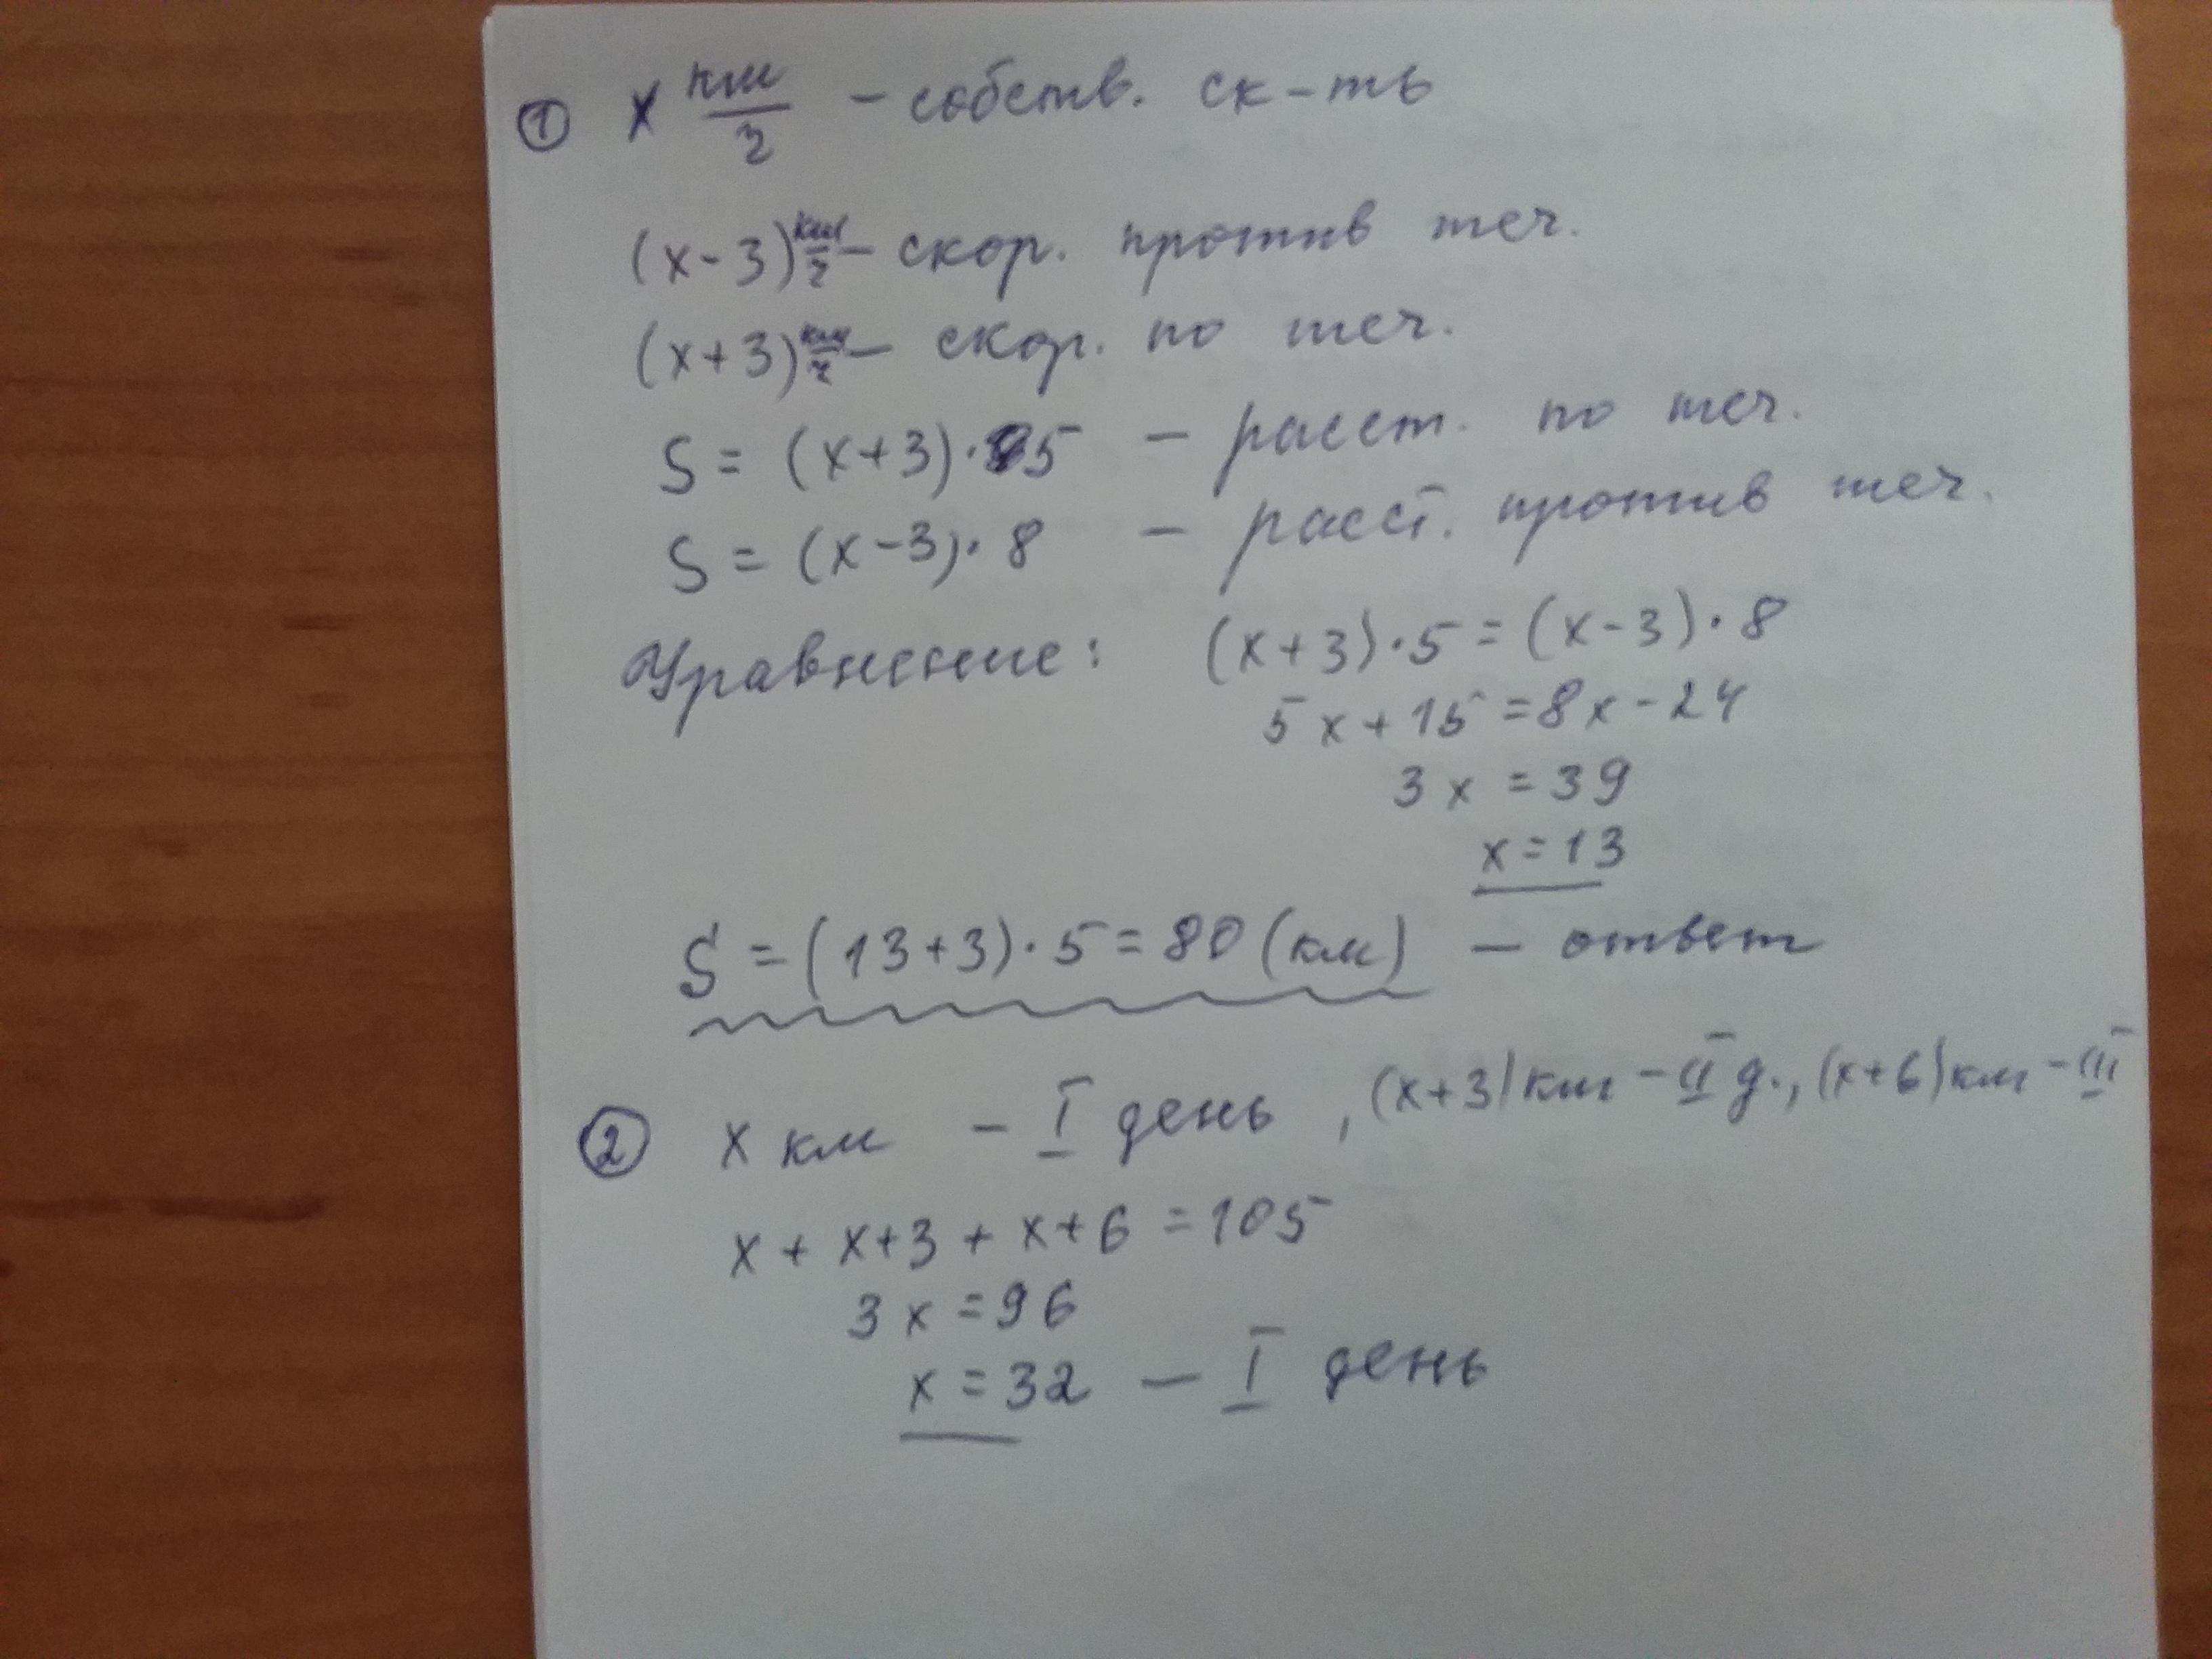 ① x км/ч – собств. ск-ть
(x-3) км/ч – скор. против теч.
(x+3) км/ч – скор. по теч.
S = (x+3)·5 – расст. по теч.
S = (x-3)·8 – расст. против теч.
Уравнение: (x+3)·5=(x-3)·8
5x+15=8x-24
3x=39
x=13
S=(13+3)·5=80(км) – ответ
② x км – I день, (x+3)км – II д., (x+6)км – III
x + x+3 + x+6 = 105
3x=96
x=32 – I день